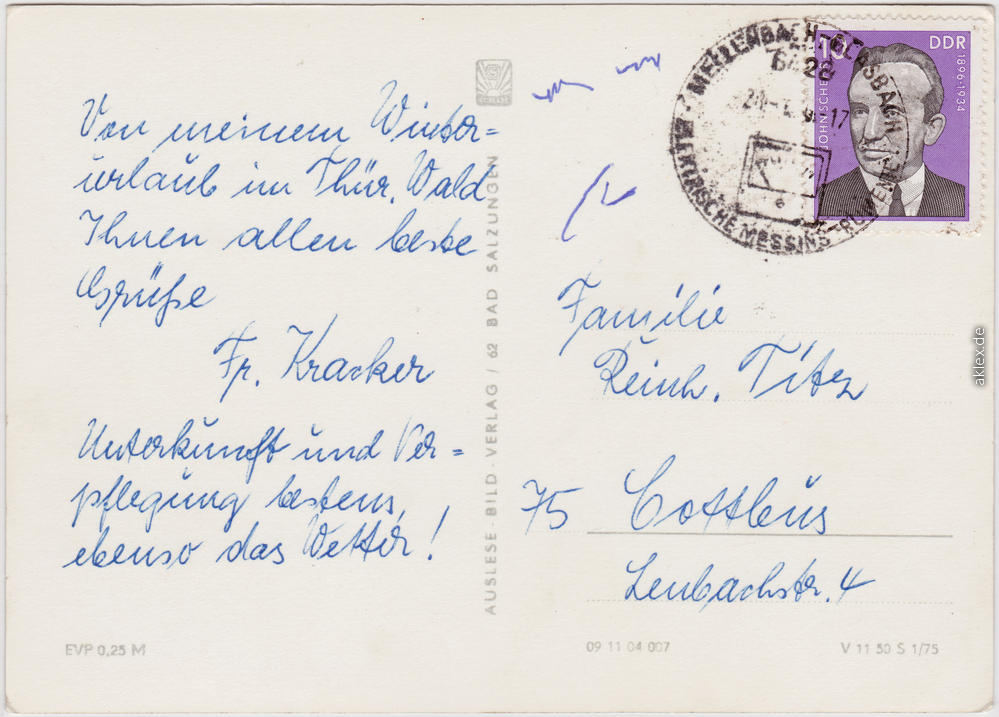 Von meinem Winter=
urlaub im Thür. Wald
Ihnen allen beste
Grüße
Fr. Kracker
Unterkunft und Ver=
pflegung bestens,
ebenso das Wetter!
EVP 0,25 M
AUSLESE-BILD-VERLAG / 62 BAD SALZUNGEN
MELLENBACH-GLASBACH
6428
ELEKTRISCHE MESSINSTRUMENTE
10
DDR
1896-1934
JOHN SCHEER
Familie
Reinh. Titz
75 Cottbus
Lenbachstr. 4
09 11 04 007
V 11 50 S 1/75
aklex.de